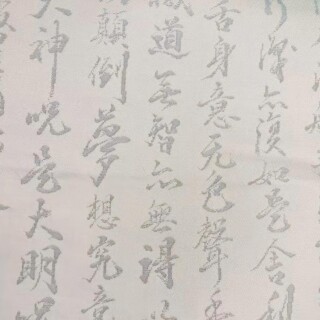 識亦復如是舍利
舌身意无色聲香
滅道無智亦無得
顛倒夢想究竟
大神呪是大明呪